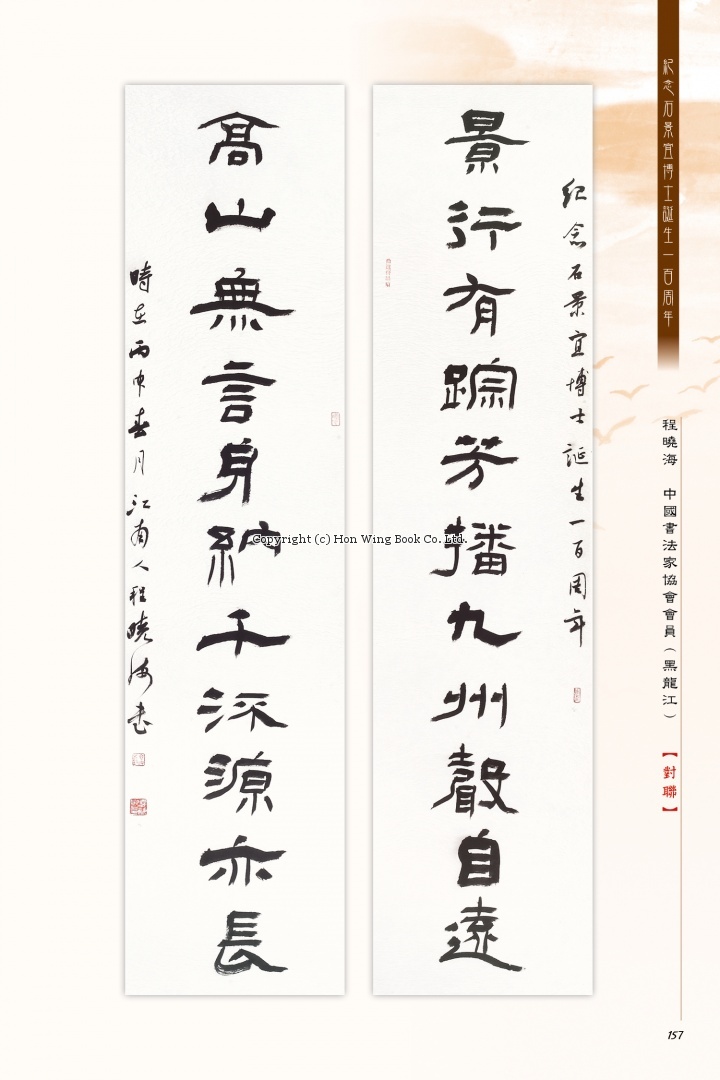 紀念石景宜博士誕生一百周年
程曉海 中國書法家協會會員（黑龍江）
【對聯】
紀念石景宜博士誕生一百周年
景行有踪芳播九州聲自遠
高山無言身納千派源亦長
時在丙申春月江南人程曉海書
Copyright (c) Hon Wing Book Co. Ltd.
157